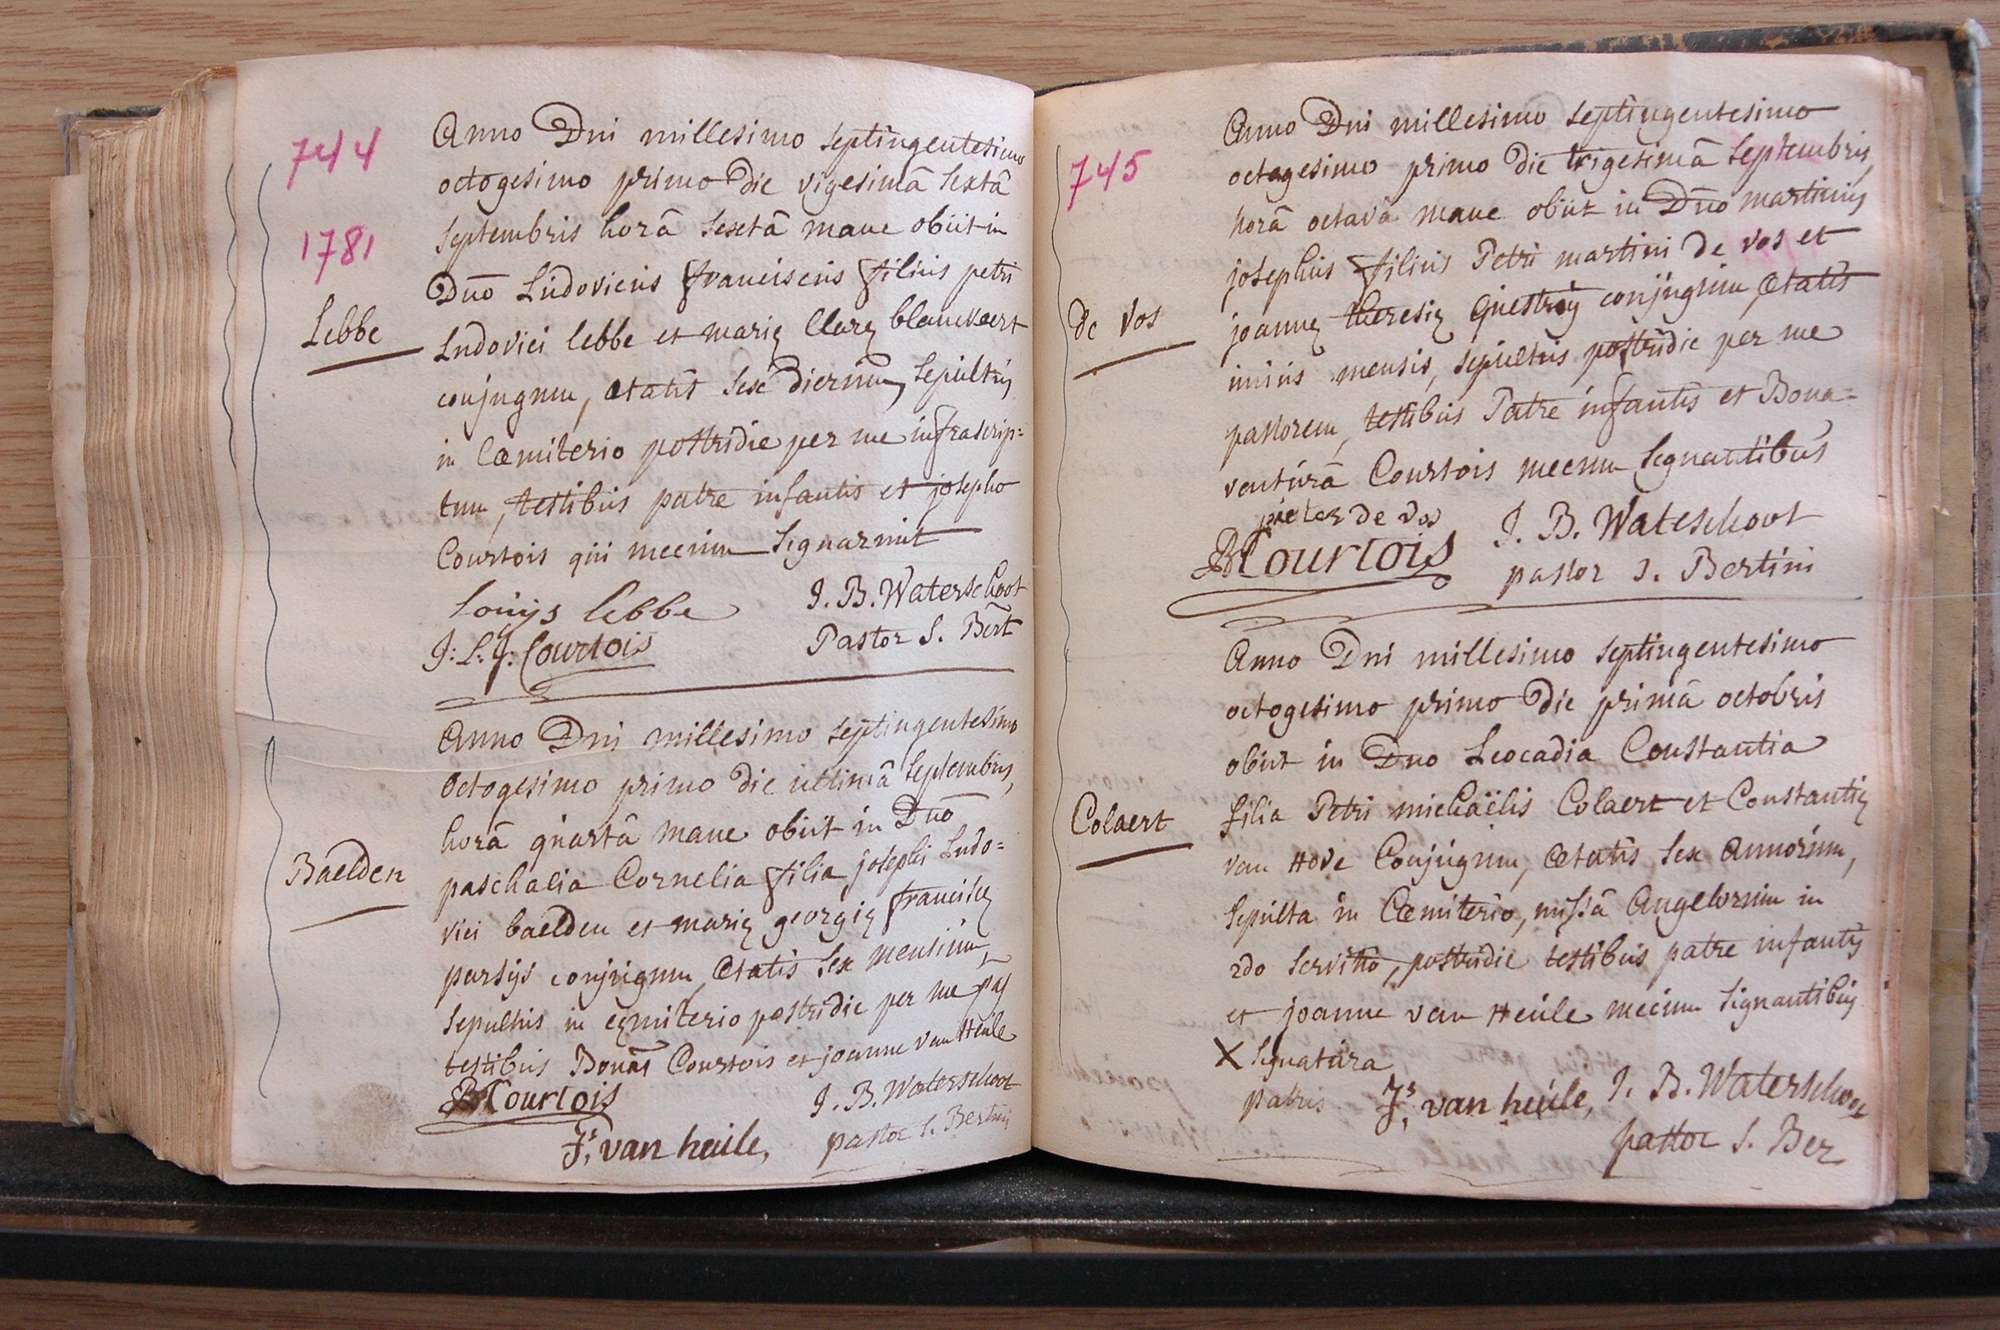 744
1781
Lebbe
Anno Dni millesimo septingentesimo
octogesimo primo die vigesimâ sextâ
septembris horâ sextâ mane obiit in
Dno Ludovicus franciscus filius petri
Ludovici lebbe et marię Clarę blauwaert
conjugum, ætatis sex dierum, sepultus
in Cæmiterio postridie per me infrascrip=
tum, testibus patre infantis et josepho
Courtois qui mecum signarunt
Louijs Lebbe
J: L: J: Courtois
J. B. Waterschoot
Pastor S. Bert
Baelden
Anno Dni millesimo septingentesimo
octogesimo primo die ultimâ septembris,
horâ quartâ mane obiit in Dno
paschalia Cornelia filia josephi Ludo=
vici baelden et marię georgię franciscę
parsijs conjugum, ætatis sex mensium,
sepultus in cęmiterio postridie per me pas
testibus Bonâ Courtois et joanne van Heule
BCourtois
Js. van heule,
J. B. Waterschoot
pastor S. Bertini
745
de Vos
Anno Dni millesimo septingentesimo
octogesimo primo die trigesimâ septembris,
horâ octavâ mane obiit in Dno martinus
josephus filius Petri martini de Vos et
joannę theresię conjugum ætatis
unius mensis, sepultus postridie per me
pastorem, testibus Patre infantis et Bona=
venturâ Courtois mecum signantibus
pieter de vos
BCourtois
J. B. Wateschoot
pastor S. Bertini
Colaert
Anno Dni millesimo septingentesimo
octogesimo primo die primâ octobris
obiit in Dno Leocadia Constantia
filia Petri michaëlis Colaert et Constantię
van Hove Conjugum, ætatis sex annorum,
sepulta in Cæmiterio, missâ Angelorum in
2do servitio, postridie testibus patre infantis
et joanne van Heule mecum signantibus
X signatura
patris
Js. van heule,
J. B. Waterschoot
pastor S. Ber